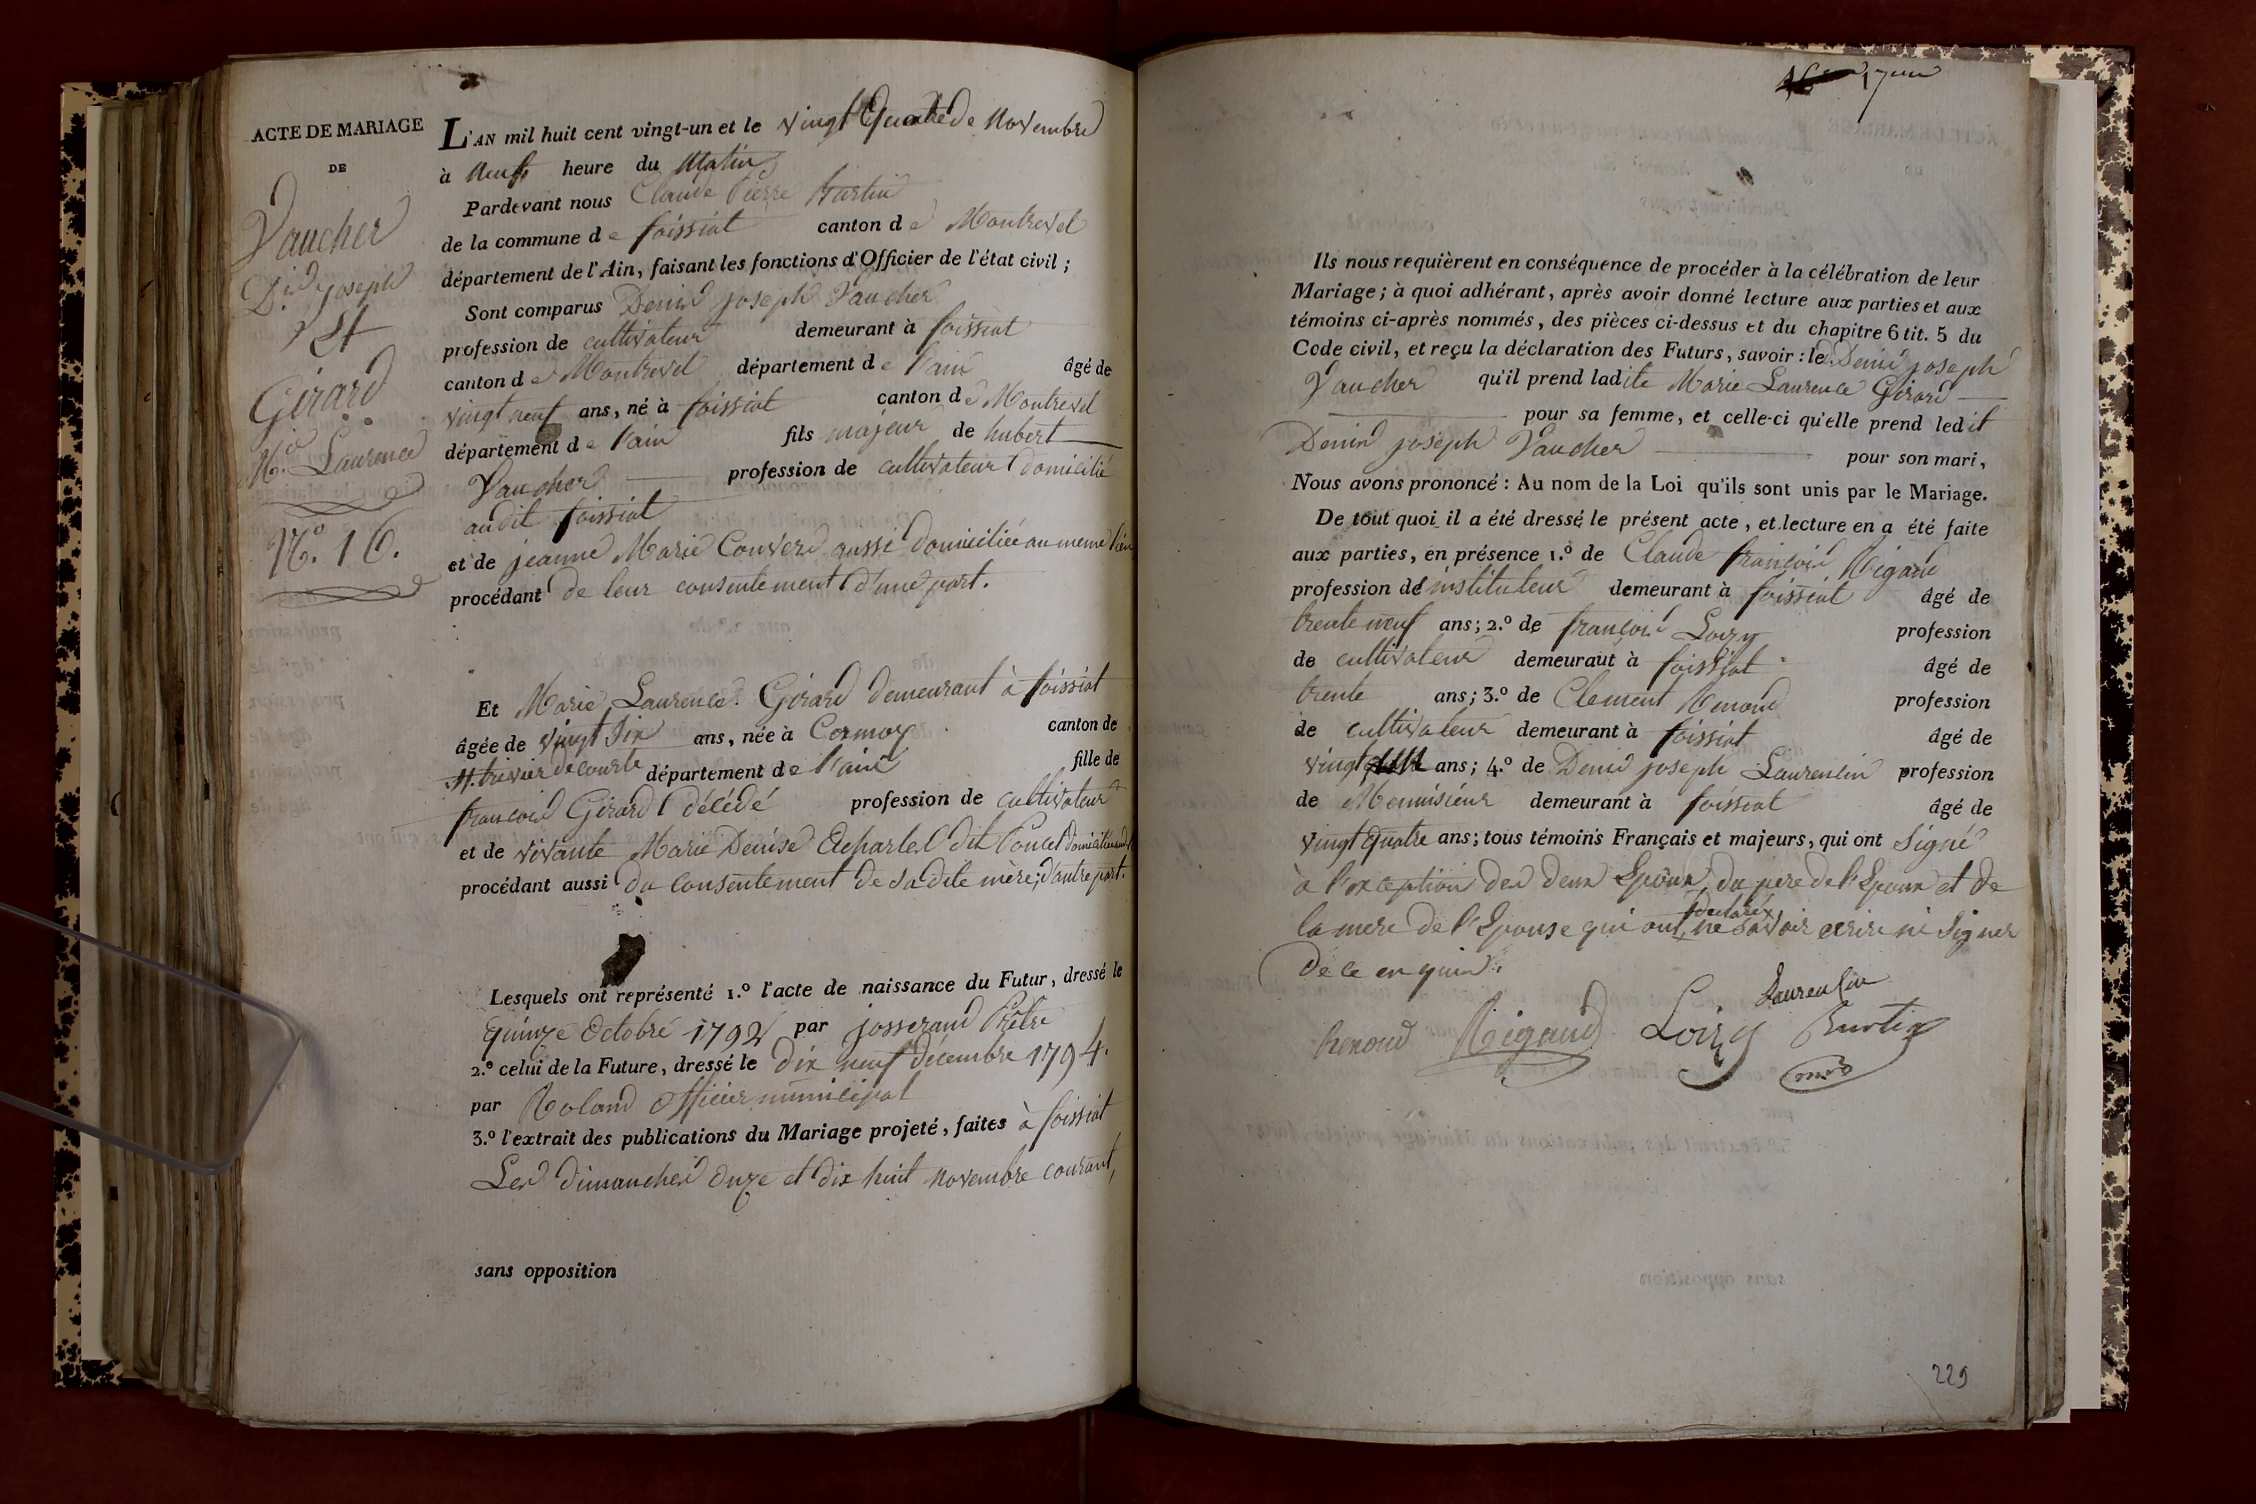 ACTE DE MARIAGE
DE
Vaucher
D.s joseph
Et
Girard
M.e Laurence
N.o 16.
L'AN mil huit cent vingt-un et le vingt Quatre de Novembre
à Neuf heure du Matin
Pardevant nous Claude Pierre Burtin
de la commune de foissiat canton de Montrevel
département de l'Ain, faisant les fonctions d'Officier de l'état civil ;
Sont comparus Denis joseph Vaucher
profession de cultivateur demeurant à foissiat
canton de Montrevel département de l'ain âgé de
vingt neuf ans, né à foissiat canton de Montrevel
département de l'ain fils majeur de hubert
Vaucher profession de cultivateur domicilié
audit foissiat
et de jeanne Marie Convers aussi domiciliée au meme lieu
procédant de leur consentement d'une part.
Et Marie Laurence Girard demeurant à foissiat
âgée de vingt Six ans, née à Cormoz canton de
St. trivier de courte département de l'ain fille de
francois Girard décédé profession de cultivateur
et de vivante Marie Denise dit Poncet
procédant aussi du consentement de sadite mère, d'autre part.
Lesquels ont représenté 1.º l'acte de naissance du Futur, dressé le
quinze Octobre 1792 par josserand Prêtre
2.º celui de la Future, dressé le dix neuf décembre 1794.
par Roland officier municipal
3.º l'extrait des publications du Mariage projeté, faites à foissiat
Les dimanches onze et dix huit novembre courant,
sans opposition
Ils nous requièrent en conséquence de procéder à la célébration de leur
Mariage ; à quoi adhérant, après avoir donné lecture aux parties et aux
témoins ci-après nommés, des pièces ci-dessus et du chapitre 6 tit. 5 du
Code civil, et reçu la déclaration des Futurs, savoir : le d. Denis joseph
Vaucher qu'il prend ladite Marie Laurence Girard
pour sa femme, et celle-ci qu'elle prend ledit
Denis joseph Vaucher pour son mari,
Nous avons prononcé : Au nom de la Loi qu'ils sont unis par le Mariage.
De tout quoi il a été dressé le présent acte, et lecture en a été faite
aux parties, en présence 1.º de Claude françois Rigaud
profession de instituteur demeurant à foissiat âgé de
trente neuf ans ; 2.º de françois Loizy profession
de cultivateur demeurant à foissiat âgé de
trente ans ; 3.º de Clement Renoud profession
de cultivateur demeurant à foissiat âgé de
vingt ans ; 4.º de Denis joseph Laurencin profession
de Menuisieur demeurant à foissiat âgé de
vingt Quatre ans ; tous témoins Français et majeurs, qui ont Signé
à l'exception des deux Epoux, du père de l'Epoux et de
la mere de l'Epouse qui ont déclaré ne savoir ecrire ni Signer
de ce enquis.
Renoud Rigaud Loizy Laurencin Burtin
229